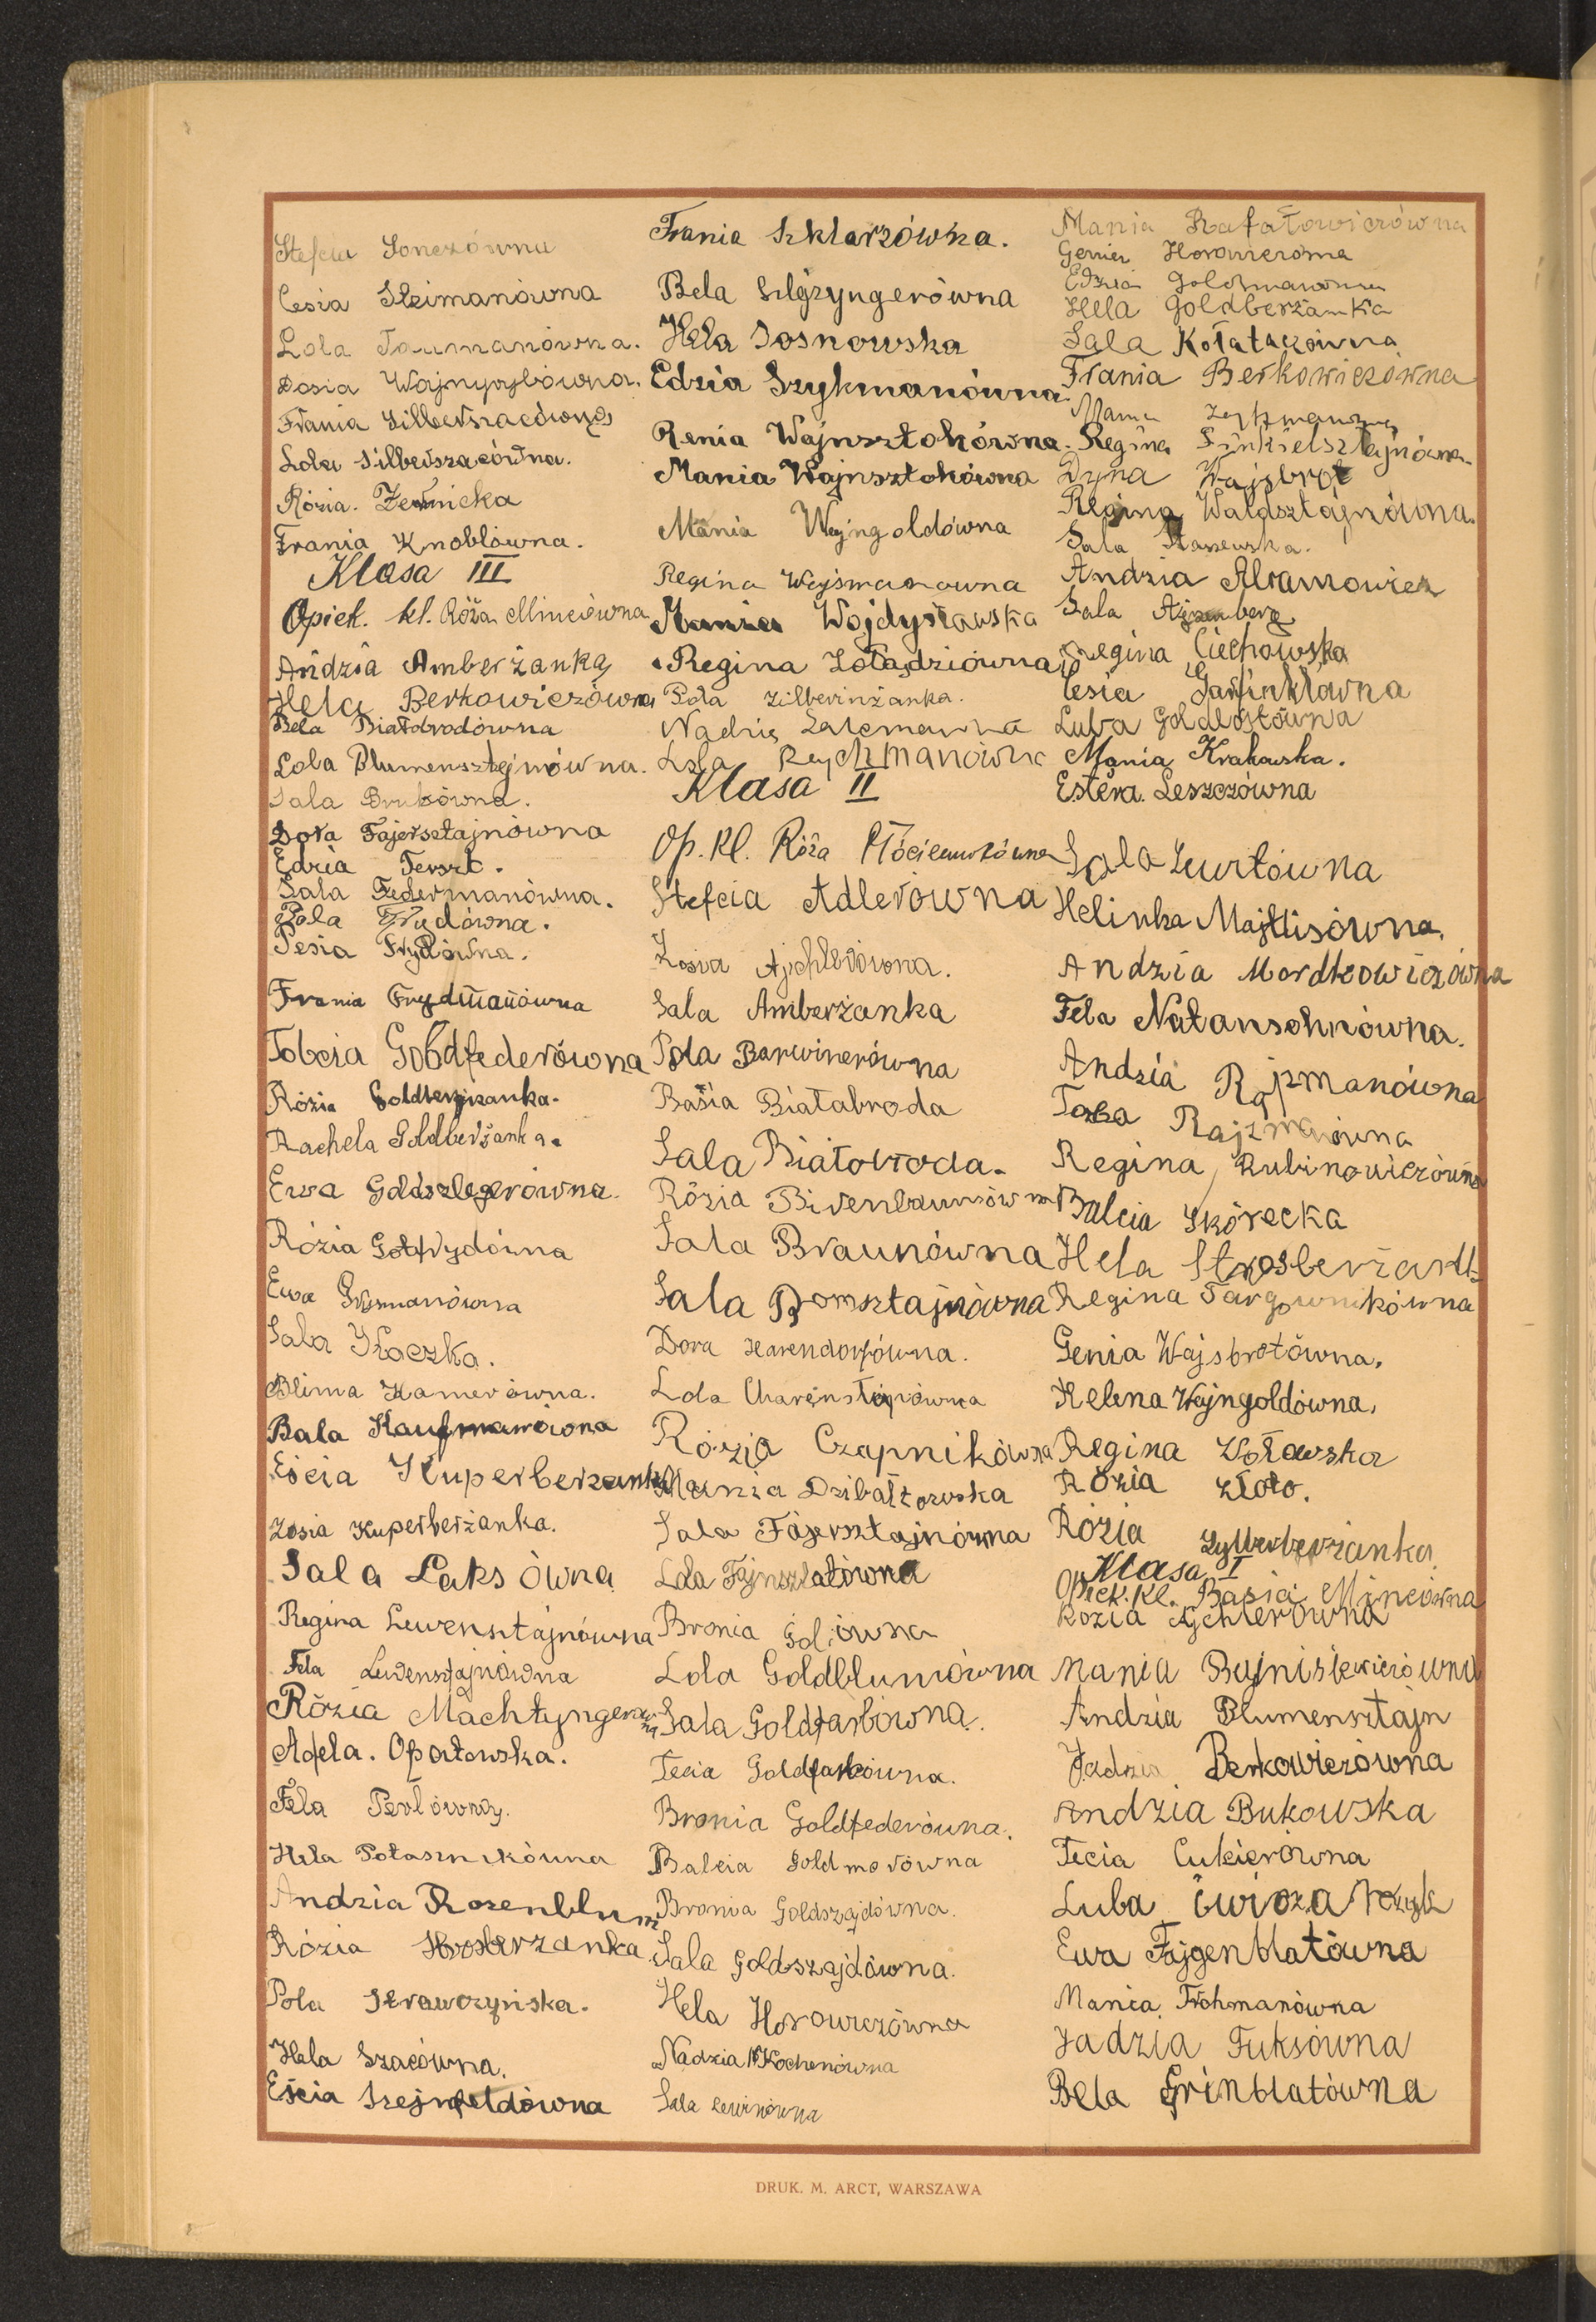 Stefcia Sonezówna
Cesia Sztimanówna
Lola Taumanówna.
Dosia
Frania
Lola Silberszacówna.
Rózia.
Frania Knoblówna.
Klasa III
Opiek. kl. Róża Mincówna
Andzia Amberżanka
Hela Berkowiczówna
Bela Białobrodówna
Lola Blumensztejnówna.
Sala Brukówna.
Dora Fajersztajnówna
Edzia Ferszt.
Sala Federmanówna.
Pola Frydówna.
Pesia Frydówna.
Frania Frydmanówna
Tobcia Goldfederówna
Rózia
Rachela Goldberżanka.
Ewa
Rózia Gotfrydówna
Ewa
Sala Kłaczka.
Blima Kamerówna.
Bala Kaufmanówna
Eścia Kuperberżanka
Zosia Kuperberżanka.
Sala Laksówna
Regina Lewensztajnówna
Fela Lewensztajnówna
Rózia Machtyngerówna
Adela. Opatowska.
Fela Perlówna.
Hela Potasznikówna
Andzia Rozenblum
Rózia
Pola
Hela Szacówna.
Eścia Szejnfeldówna
Frania Szklarzówna.
Bela Szlęzyngerówna
Hela Sosnowska
Edzia Szykmanówna
Renia Wajnsztokówna.
Mania Wajnsztokówna
Mania Wejngoldówna
Regina Wajsmanowna
Mania Wojdysławska
Regina Żołądziówna
Pola Zilberinżanka.
Nadzia Zalcmanwna
Lola Rejchmanówna
Klasa II
Op. kl. Róża Płócienników­na
Stefcia Adlerówna
Zosia Ajchlerówna.
Sala Amberżanka
Pola Barwinerówna
Basia Białabroda
Sala Białobroda.
Rózia Birenbaumówna
Sala Braunówna
Sala Bomsztajnówna
Dora Harendorfówna.
Lola
Rózia Czapnikówna
Mania Dzibałtowska
Sala Fajersztajnówna
Lola Fajnszlatówna
Bronia
Lola Goldblumówna
Sala Goldfarbówna.
Tecia Goldfarbówna.
Bronia Goldfederówna.
Balcia Goldmerówna
Bronia Goldszajdówna.
Sala Goldszajdówna.
Hela Horowiczówna
Nadzia Kochenówna
Sala Lewinówna
Mania Rafałowiczówna
Genia
Edzia
Hela Goldberżanka
Sala Kołataczówna
Frania Berkowiczówna
Mania
Regina Finkielsztajnówna
Dyna Wajsbrot
Regina Waldsztajnówna.
Sala
Andzia Abramowicz
Sala Ajzenberg
Regina Ciechowska
Cesia Garfinklówna
Luba
Mania Krakowska.
Estera Leszczówna
Sala
Helinka Majtlisówna.
Andzia Mordkowiczówna
Fela Natansohnówna.
Andzia Rajzmanówna
Rajzmanówna
Regina Rubinowiczówna
Balcia Skórecka
Hela
Regina Targownikówna
Genia Wajsbrotówna.
Helena Wajngoldówna.
Regina Wołowska
Rózia Złoto.
Rózia Zylberberżanka
Klasa I
Opiek. kl. Basia Mincówna
Rózia Ajchlerówna
Mania
Andzia Blumensztajn
Jadzia Berkowiczówna
Andzia Bukowska
Tecia Cukierówna
Luba
Ewa Fajgenblatówna
Mania Frohmanówna
Jadzia Fuksówna
Bela Grinblatówna
DRUK. M. ARCT, WARSZAWA